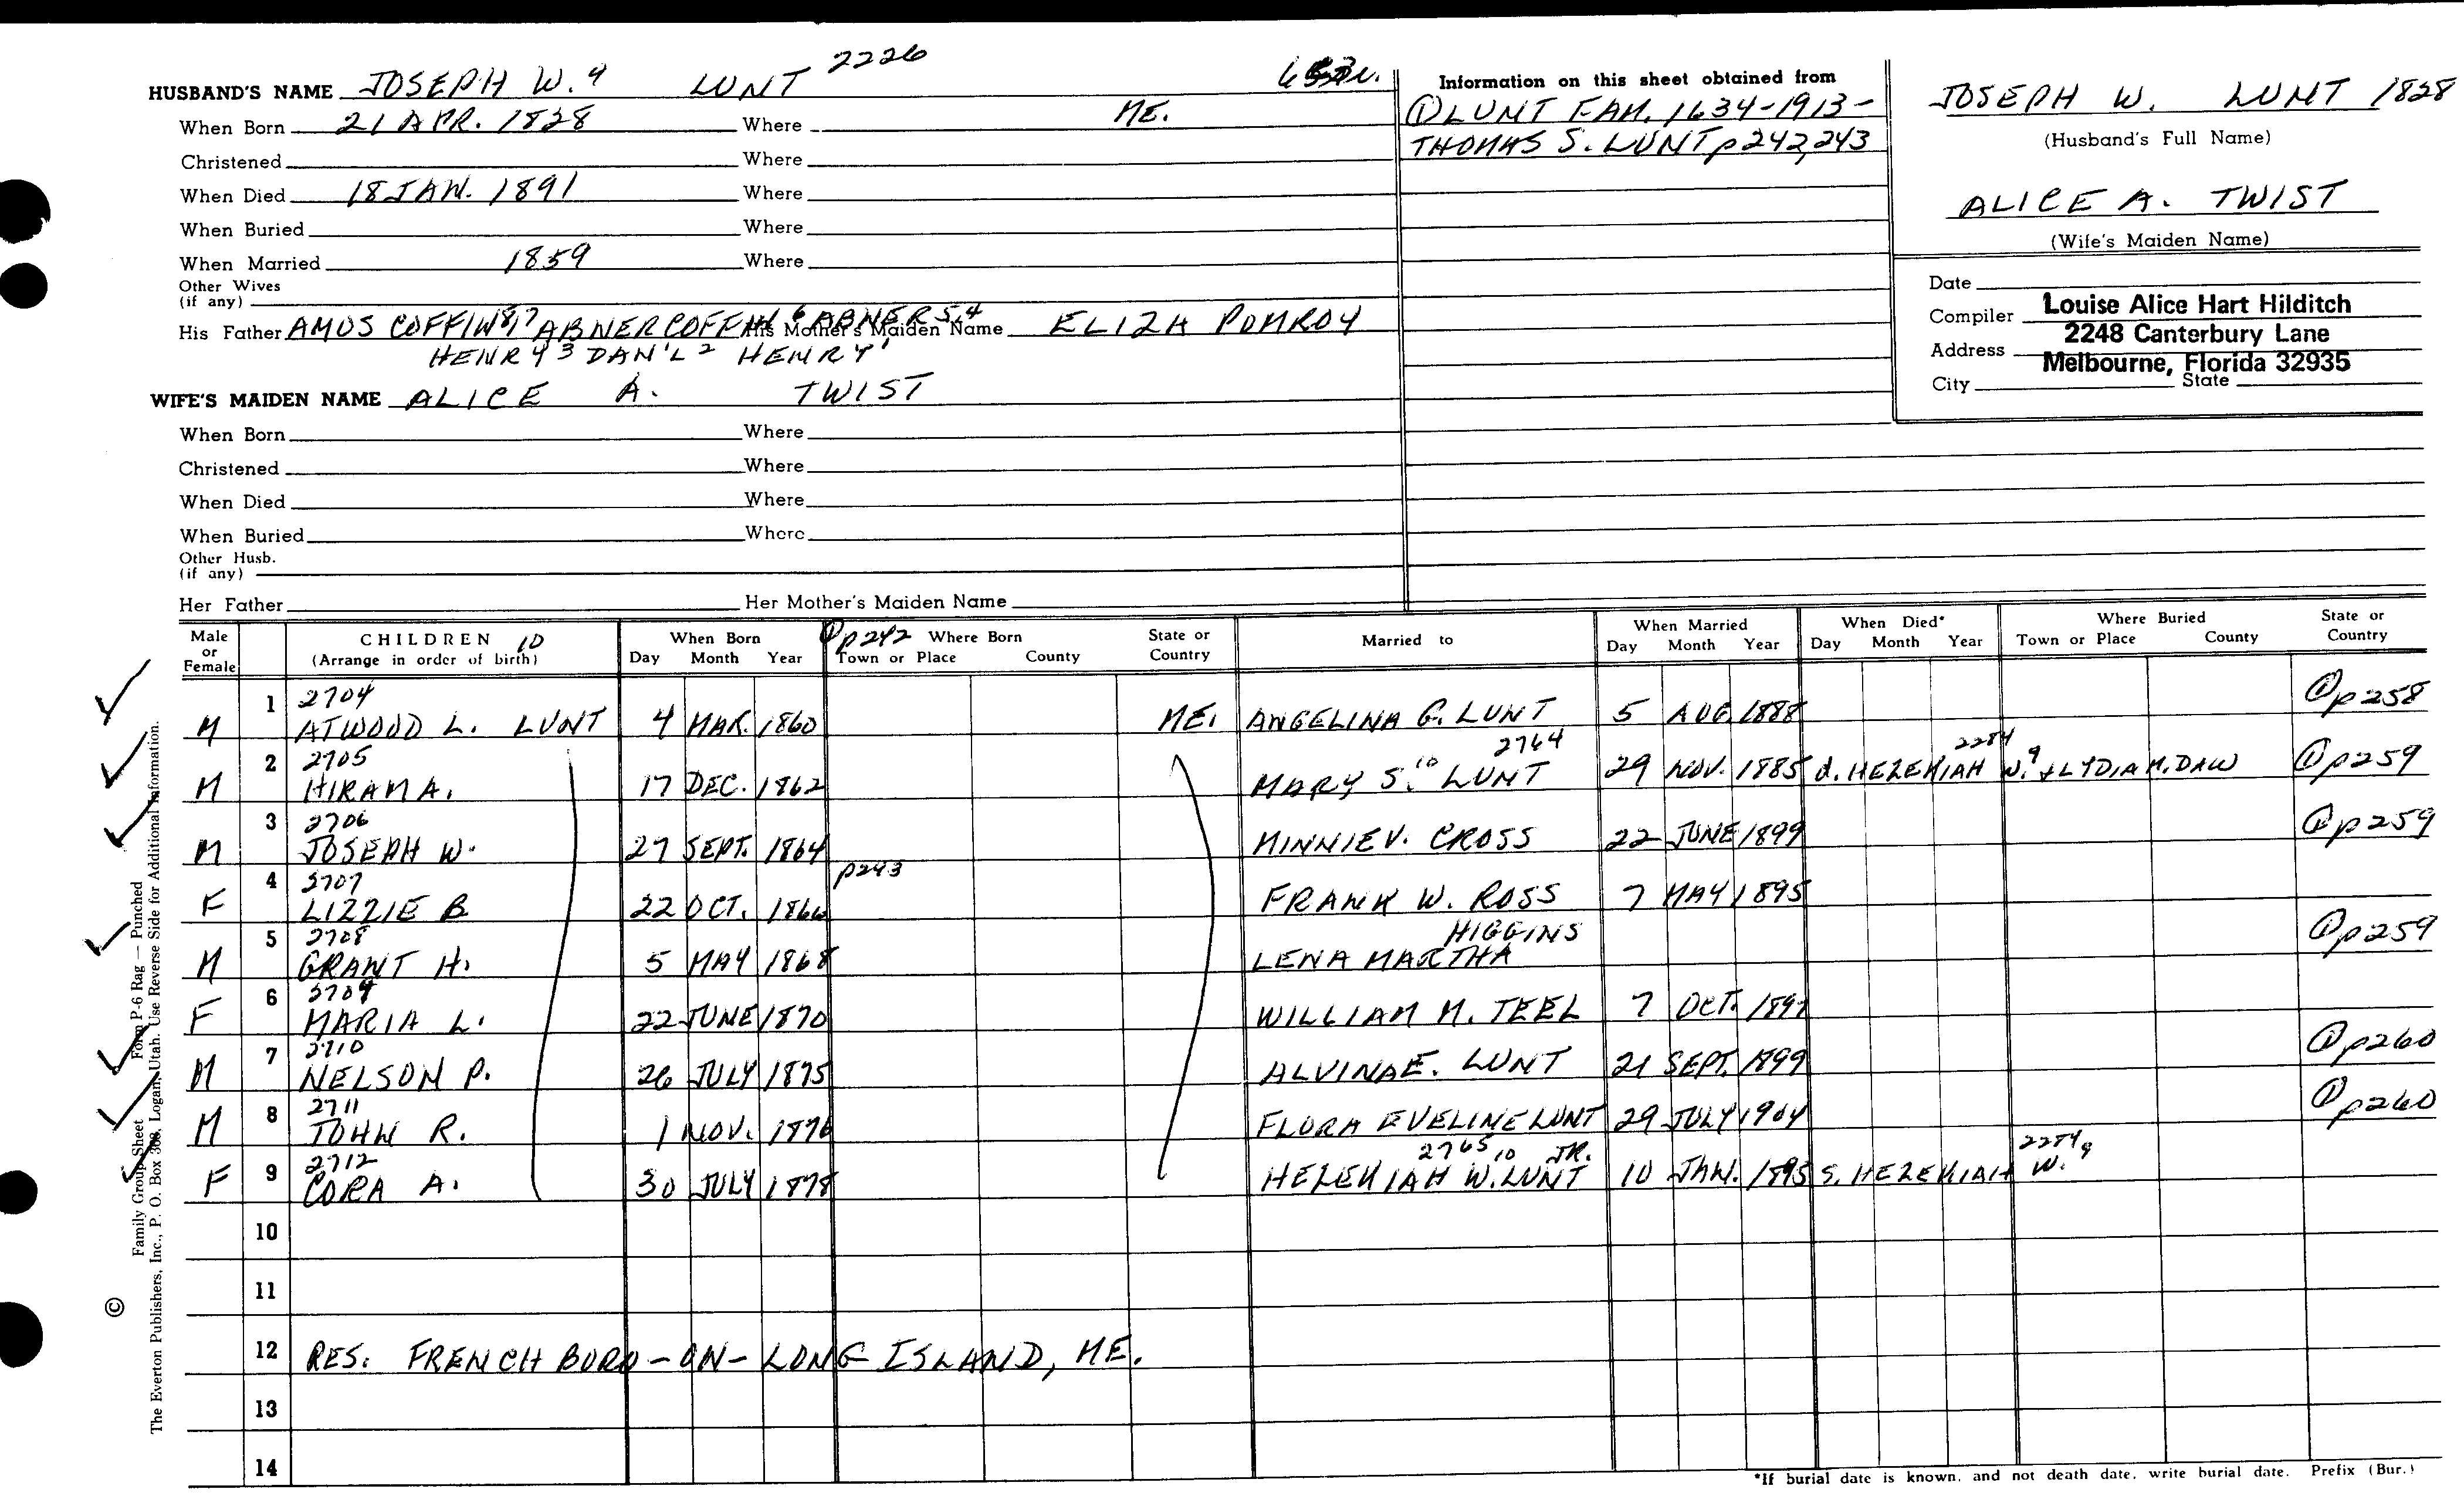 2226
HUSBAND'S NAME JOSEPH W. 9 LUNT
When Born 21 APR. 1828 Where ME.
Christened Where
When Died 18 JAN. 1891 Where
When Buried Where
When Married 1859 Where
Other Wives
(if any)
His Father AMOS COFFIN 8, 7 ABNER COFFIN 6 ABNER 5,4 His Mother's Maiden Name ELIZA POMROY
HENRY 3 DAN'L 2 HENRY 1
WIFE'S MAIDEN NAME ALICE A. TWIST
When Born Where
Christened Where
When Died Where
When Buried Where
Other Husb.
(if any)
Her Father Her Mother's Maiden Name
Information on this sheet obtained from
① LUNT FAM. 1634-1913-
THOMAS S. LUNT p242,243
JOSEPH W. LUNT 1828
(Husband's Full Name)
ALICE A. TWIST
(Wife's Maiden Name)
Date
Compiler Louise Alice Hart Hilditch
2248 Canterbury Lane
Address
Melbourne, Florida 32935
City State
Male or Female CHILDREN 10 (Arrange in order of birth) When Born Day Month Year ① p242 Where Born Town or Place County State or Country Married to When Married Day Month Year When Died* Day Month Year Where Buried Town or Place County State or Country
1 2704 ① p258
M ATWOOD L. LUNT 4 MAR. 1860 ME. ANGELINA G. LUNT 5 AUG. 1888
2 2705 2764 2284
M HIRAM A. 17 DEC. 1862 MARY S. 10 LUNT 29 NOV. 1885 d. HEZEKIAH W. 9 & LYDIA M. DAW ① p259
3 2706 ① p259
M JOSEPH W. 27 SEPT. 1864 MINNIE V. CROSS 22 JUNE 1899
4 2707 p243
F LIZZIE B 22 OCT. 1866 FRANK W. ROSS 7 MAY 1895
5 2708 HIGGINS ① p259
M GRANT H. 5 MAY 1868 LENA MARTHA
6 2709
F MARIA L. 22 JUNE 1870 WILLIAM M. TEEL 7 OCT. 1897
7 2710 ① p260
M NELSON P. 26 JULY 1875 ALVINA E. LUNT 21 SEPT. 1899
8 2711 ① p260
M JOHN R. 1 NOV. 1876 FLORA EVELINE LUNT 29 JULY 1904
9 2712 2765 10 JR. 2284 9
F CORA A. 30 JULY 1878 HEZEKIAH W. LUNT 10 JAN. 1895 S. HEZEKIAH W.
10
11
12 RES. FRENCH BORO-ON-LONG ISLAND, ME.
13
14
*If burial date is known, and not death date, write burial date. Prefix (Bur.)
© Family Group Sheet Form P-6 Rag — Punched
The Everton Publishers, Inc., P. O. Box 368, Logan, Utah. Use Reverse Side for Additional Information.